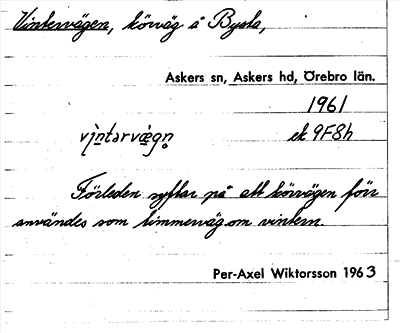 Vintervägen, körväg å Bysta,
Askers sn, Askers hd, Örebro län.
1961
vìntərvæ̀gn̥ ek 9F8h
Förleden syftar på att körvägen förr
användes som timmerväg om vintern.
Per-Axel Wiktorsson 1963